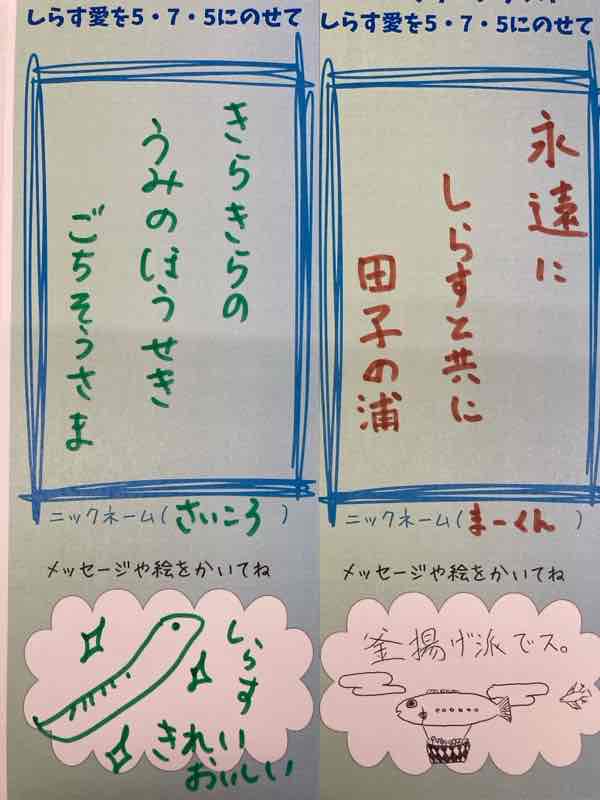 しらす愛を5・7・5にのせて
きらきらの
うみのほうせき
ごちそうさま
ニックネーム(さいころ)
メッセージや絵をかいてね
しらす
きれい
おいしい
しらす愛を5・7・5にのせて
永遠に
しらすと共に
田子の浦
ニックネーム(まーくん)
メッセージや絵をかいてね
釜揚げ派でス。